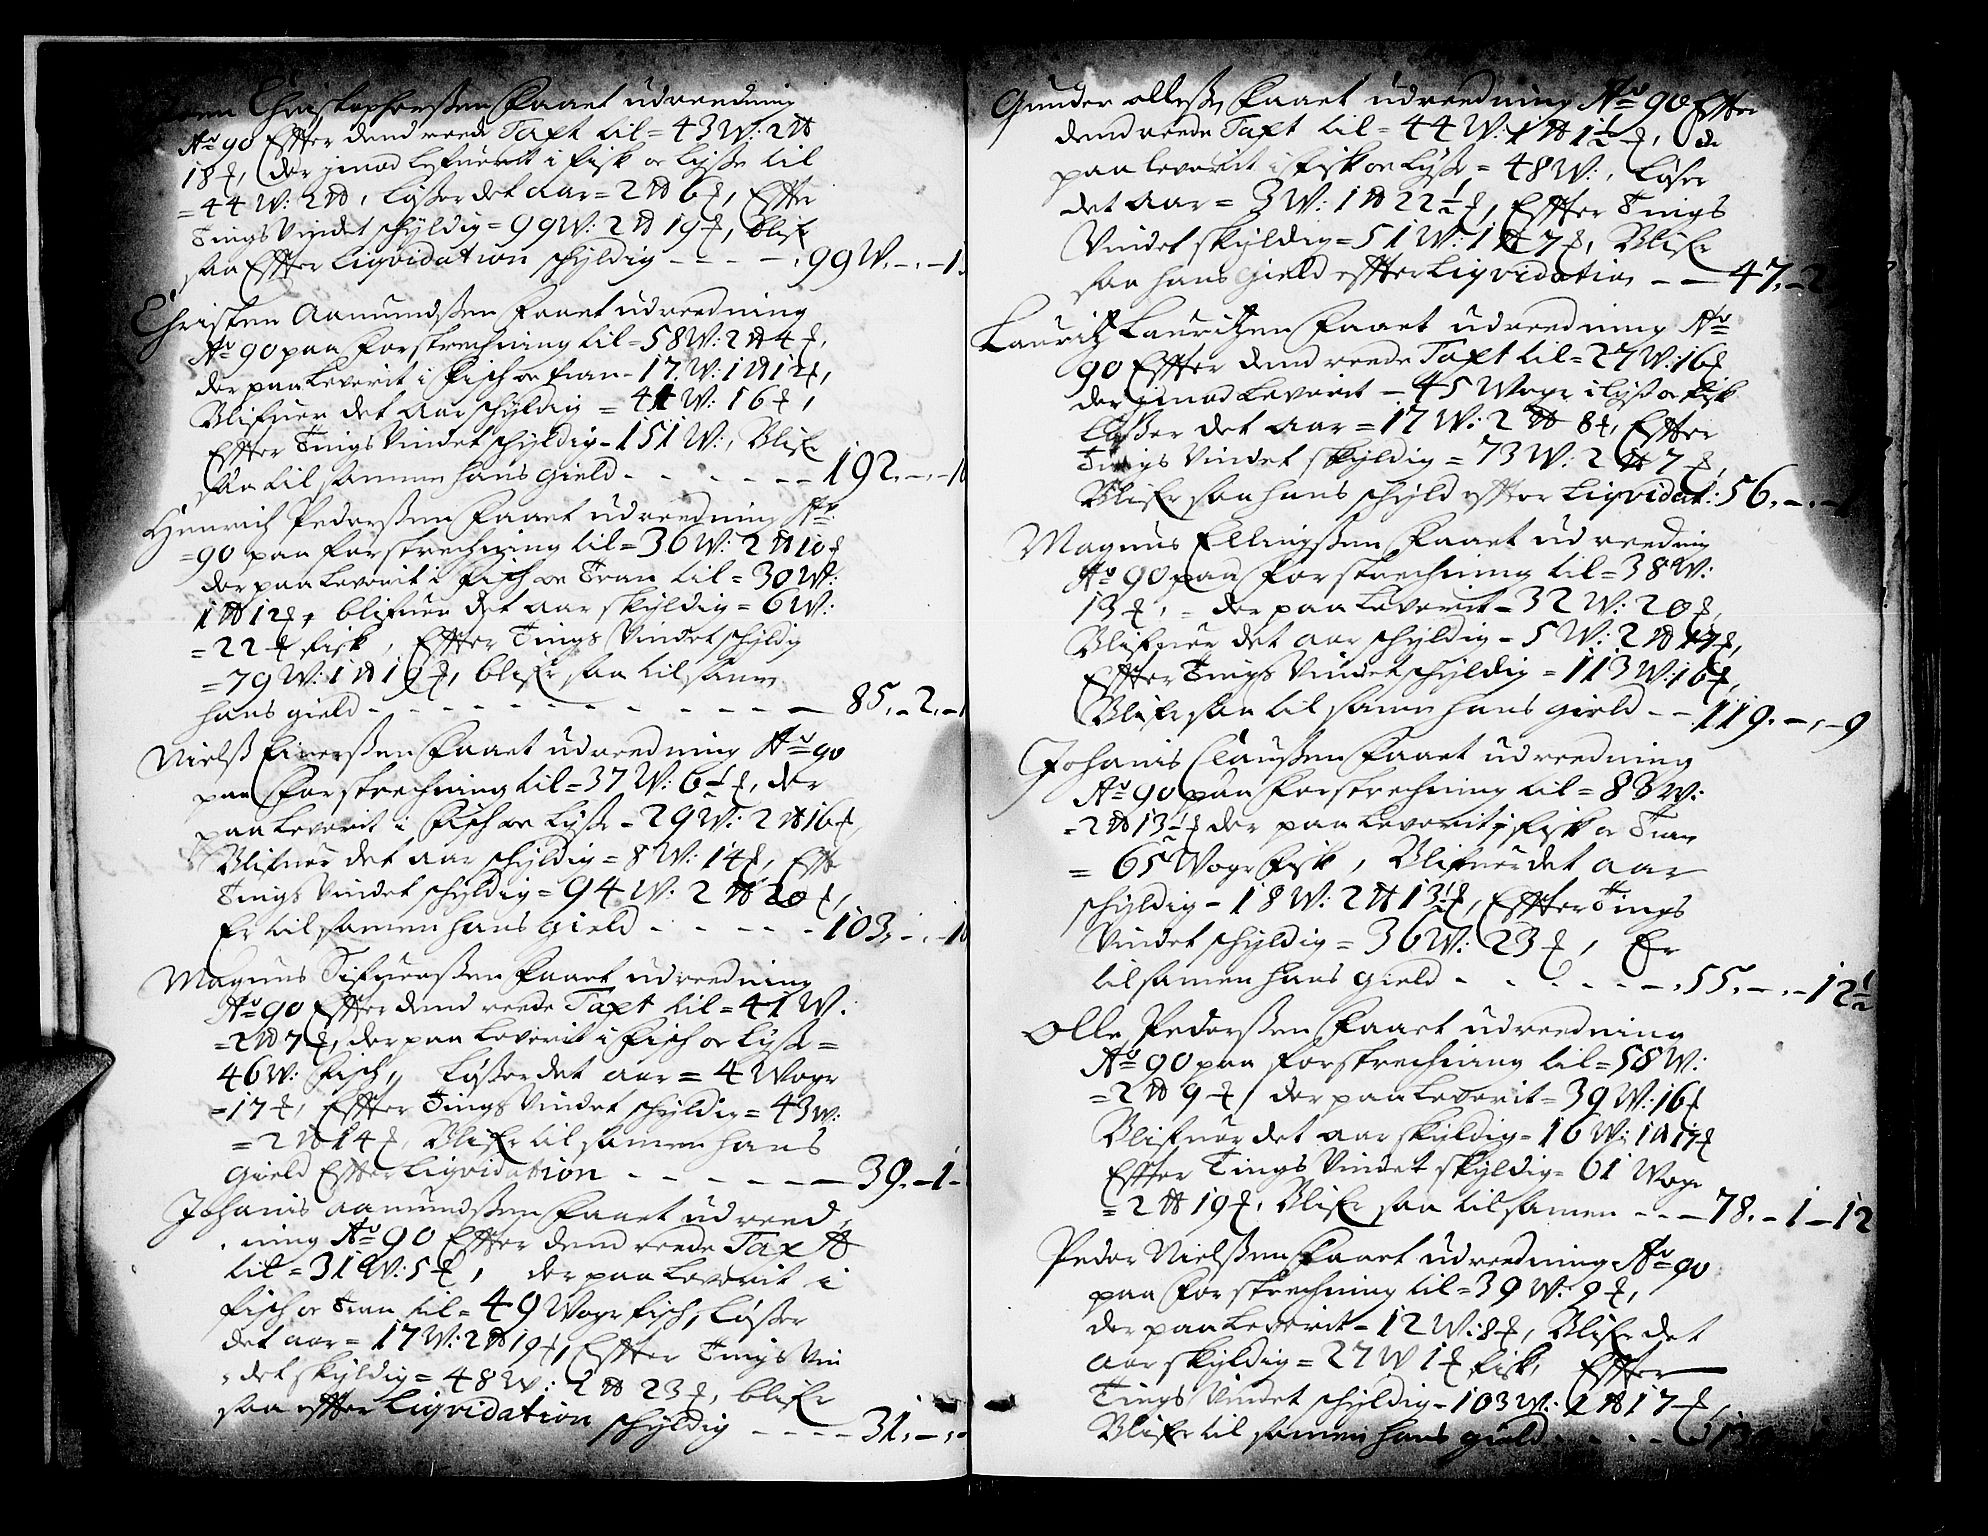 Christophersen faaet udreedning
Ao 90 Effter dend reede Taxt til = 43 W: 2 ℔
18 ʒ, der imod lefuerit i fisk oc lysse til
= 44 W: 2 ℔, løsser det aar = 2 ℔ 6 ʒ, Effter
Tings Vindet schyldig = 99 W: 2 ℔ 19 ʒ, blifr
saa Effter Liqvidation schyldig - - - - 99 W. -. - 1
Christen Aamundssen faaet udreedning
Ao 90 paa forstrechning til = 58 W: 2 ℔ 4 ʒ,
der paa Leverit i fisch oc tran - 17 W: 1 ℔ 12 ʒ,
Blifuer det aar schyldig = 41 W: 16 ʒ,
Effter Tings Vindet schyldig - 151 W:, Blifr
saa til samen hans gield - - - - - - 192. -. - 16
Henrich Pederssen faaet udreedning Ao
= 90 paa forstrechning til = 36 W: 2 ℔ 10 ʒ
der paa Leverit i fisch oc Tran til = 30 W:
1 ℔ 12 ʒ, blifuer det aar skyldig = 6 W:
= 22 ʒ fisk, Effter Tings Vindet schyldig
= 79 W: 1 ℔ 19 ʒ, blifr saa til samen
hans gield - - - - - - - - - - - 85. - 2. - 1
Nielss Eiverssen faaet udreedning Ao 90
paa forstrechning til = 37 W: 6 ½ ʒ, der
paa Leverit i fisch oc lysse - 29 W: 2 ℔ 16 ʒ,
Blifuer det aar schyldig = 8 W: 14 ʒ, Effter
Tings Vindet schyldig = 94 W: 2 ℔ 20 ʒ,
Er til samen hans gield - - - - - 103. -. - 10
Magnus Sifuerssen faaet udreedning
Ao 90 Effter dend reede Taxt til = 41 W:
= 2 ℔ 7 ʒ, der paa Leverit i fisch oc lysse =
46 W: fisch, løsser det aar = 4 Wogr
= 17 ʒ, Effter Tings Vindet schyldig = 43 W:
= 2 ℔ 14 ʒ, Blifr til samen hans
gield Effter Liqvidation - - - - - - 39. - 1 -
Johanis Aamundssen faaet udreed
ning Ao 90 Effter dend reede Taxt
til = 31 W: 5 ʒ, der paa Leverit i
fisch oc Tran til = 49 Wogr fisch, Løsser
det aar = 17 W: 2 ℔ 19 ʒ, Effter Tings Vin
det skyldig = 48 W: 2 ℔ 23 ʒ, blifr
saa effter Liqvidation schyldig - - - - 31. -.
Gunder ollesen, faaet udreedning Ao 90 Effter
dend reede Taxt til = 44 W: 1 ℔ 1 ½ ʒ, der
paa leverit i fisk oc lysse = 48 W:, Løser
det aar = 3 W: 1 ℔ 22 ½ ʒ, Effter Tings
Vindet skyldig = 51 W: 1 ℔ 7 ʒ, Blifr
saa hans gield effter Liqvidation - - 47. - 2
Lauritz Lauritzen faaet udreedning Ao
90 Effter dend reede Taxt til = 27 W: 16 ʒ
der imod Leverit - 45 Wogr i lyss oc fisk
Løsser det aar = 17 W: 2 ℔ 8 ʒ, Effter
Tings Vindet skyldig = 73 W: 2 ℔ 7 ʒ,
Blifr saa hans schyld effter Liqvidat: 56. -. -
Magnus Ellingssen faaet udreedning
Ao 90 paa forstrechning til = 38 W:
13 ʒ, - der paa Leverit - 32 W: 20 ʒ,
Blifuer det aar schyldig - 5 W: 2 ℔ 17 ʒ,
Effter Tings Vindet schyldig = 113 W: 16 ʒ,
Blifr saa til samen hans gield - - 119. -. - 9
Johanis Claussen faaet udreedning
Ao 90 paa forstrechning til = 83 W:
= 2 ℔ 13 ½ ʒ der paa Leverit i fisk oc Tran
= 65 Wogr fisk, Blifuer det aar
schyldig - 18 W: 2 ℔ 13 ½ ʒ, Effter Tings
Vindet schyldig = 36 W: 23 ʒ, Er
til samen hans gield - - - - - - 55. -. - 12 ½
Olle Pederssen faaet udreedning
Ao 90 paa forstrechning til = 58 W:
= 2 ℔ 9 ʒ, der paa Leverit = 39 W: 16 ʒ
Blifuer det aar skyldig - 16 W: 1 ℔ 17 ʒ
Effter Tings Vindet skyldig = 61 Wogr
= 2 ℔ 19 ʒ, Blifr saa til samen - - - 78. - 1 - 12
Peder Nielssen faaet udreedning Ao 90
paa forstrechning til = 39 W: 9 ʒ,
der paa Leverit - 12 W: 8 ʒ, Blifr det
aar skyldig = 27 W 1 ʒ fisk, Effter
Tings Vindet schyldig - 103 W: 1 ℔ 17 ʒ,
Blifr til samen hans gield - - - -